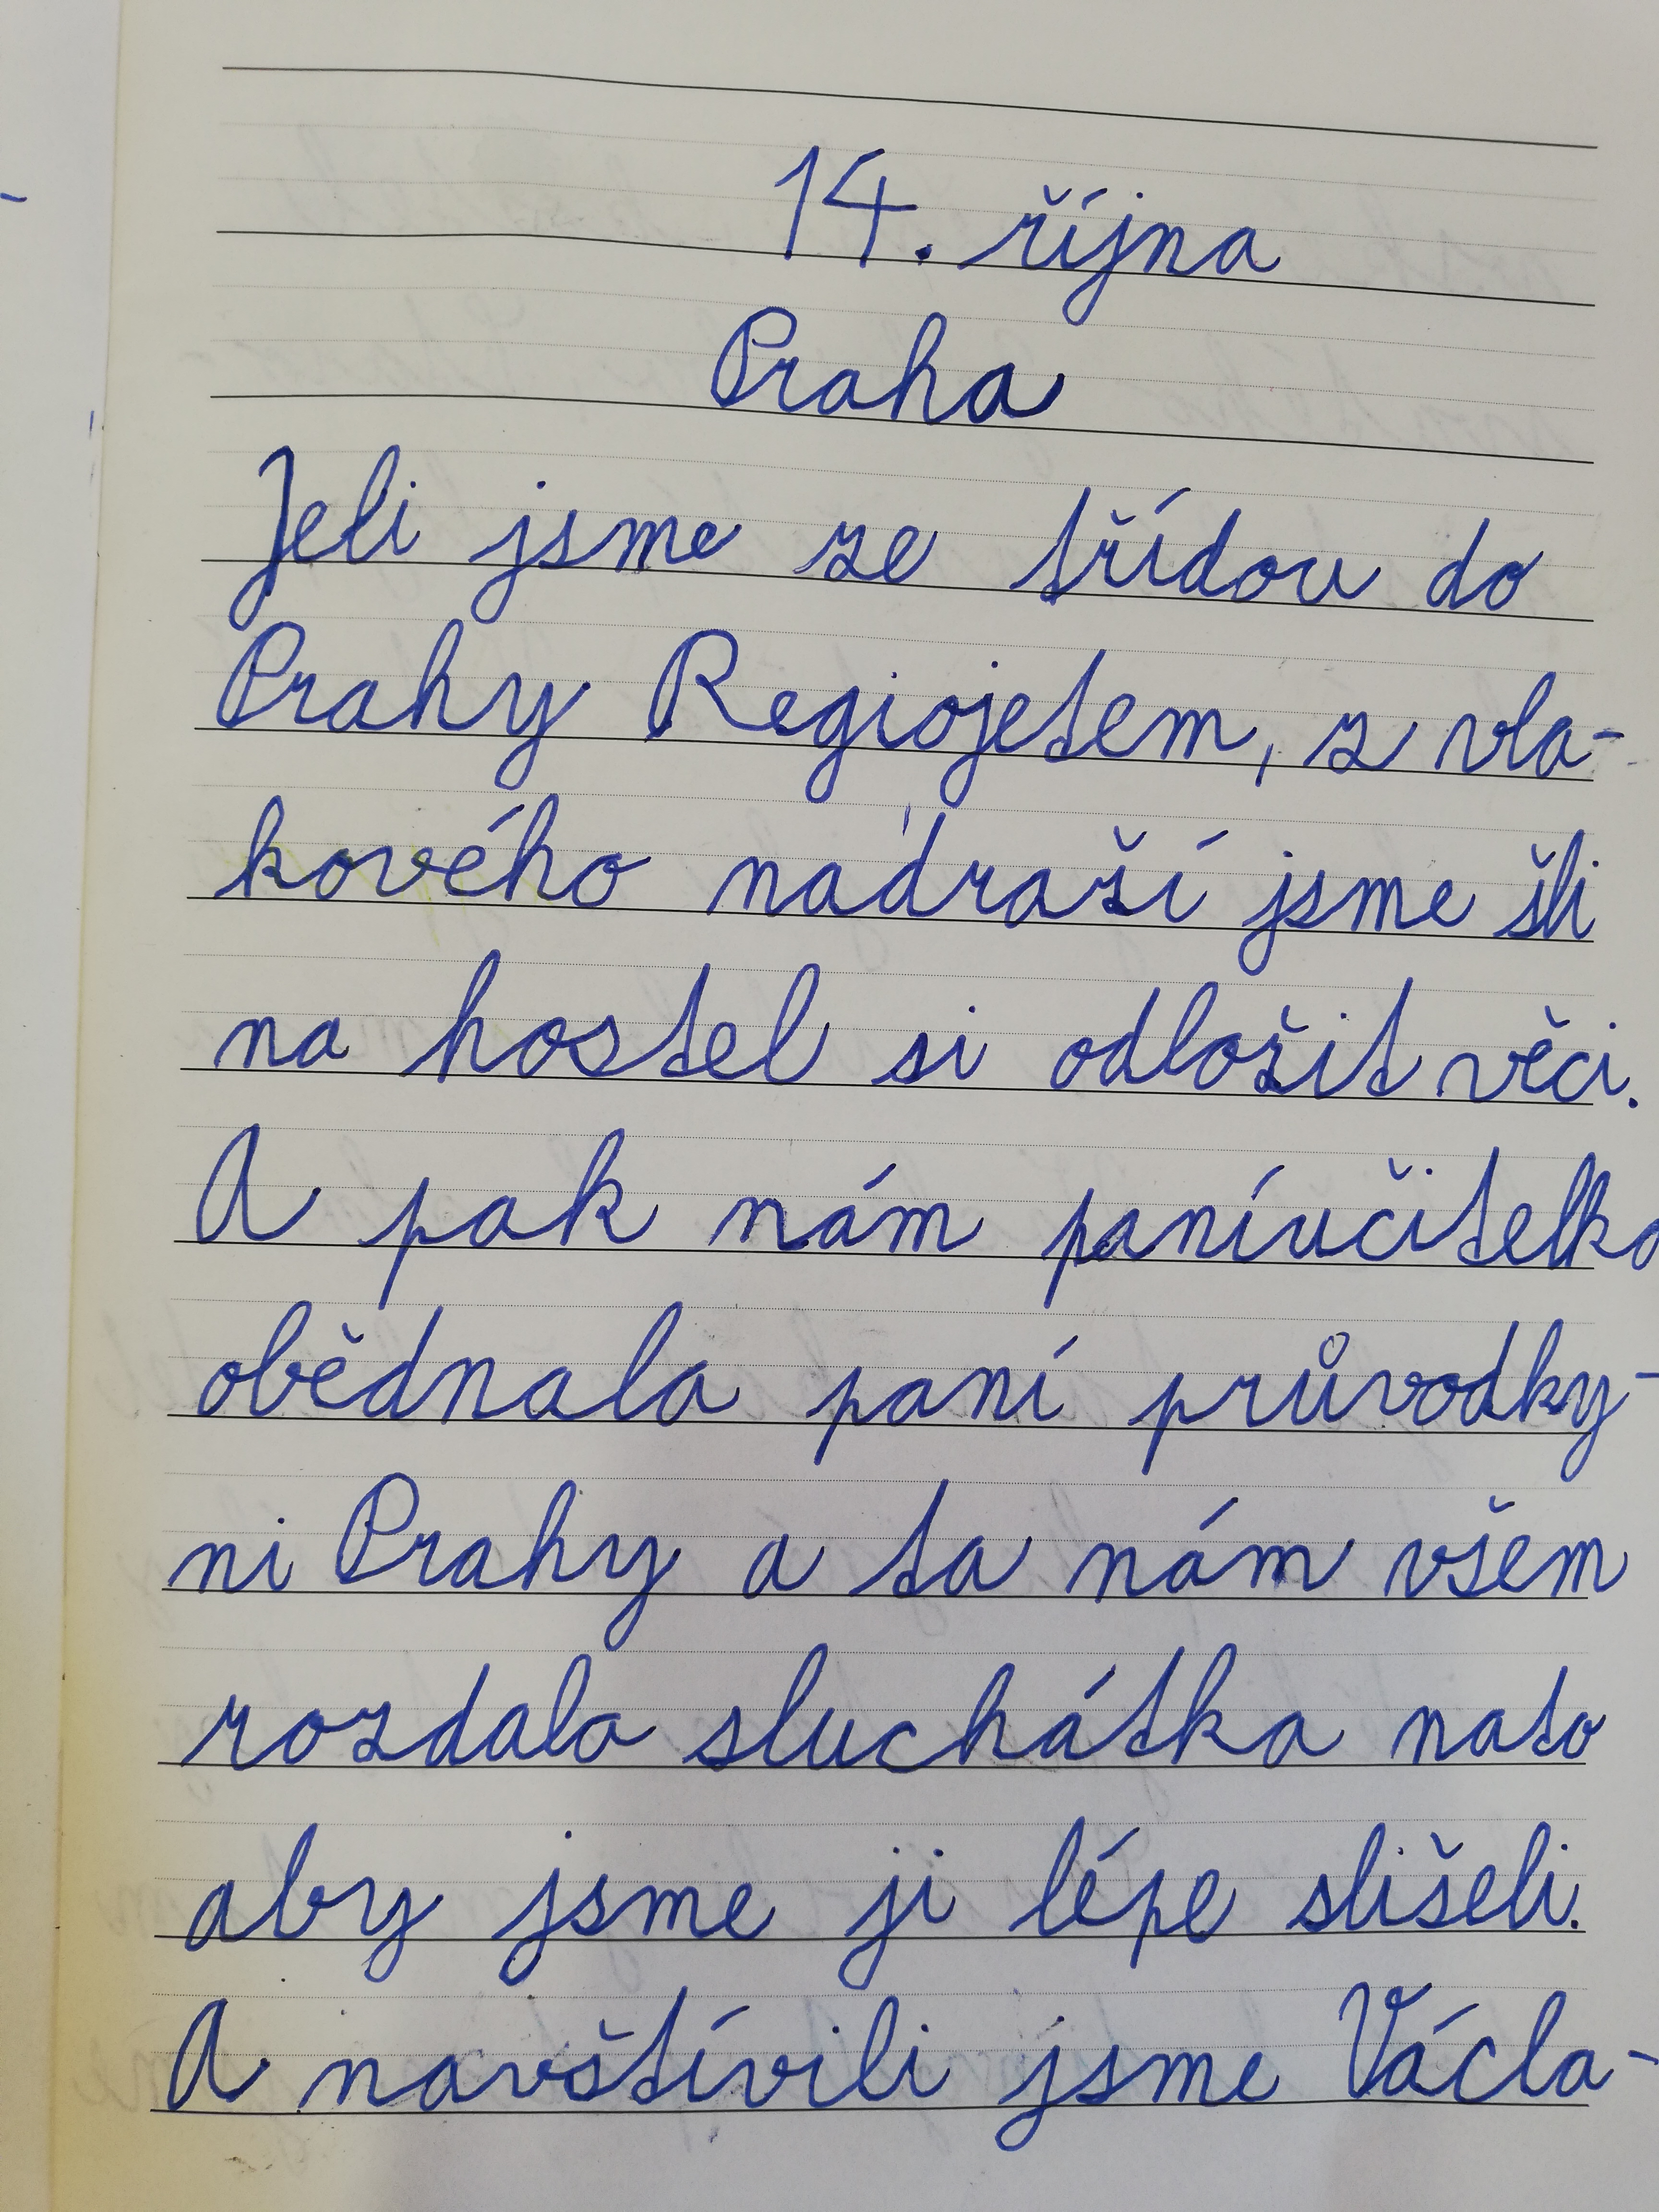 14. října
Praha
Jeli jsme ze třídou do
Prahy Regiojetem, z vla-
kového nádraží jsme šli
na hostel si odložit věci.
A pak nám paníučitelka
obědnala paní průvodky-
ni Prahy a ta nám všem
rozdala sluchátka nato
aby jsme ji lépe slišeli.
A navštívili jsme Václa-